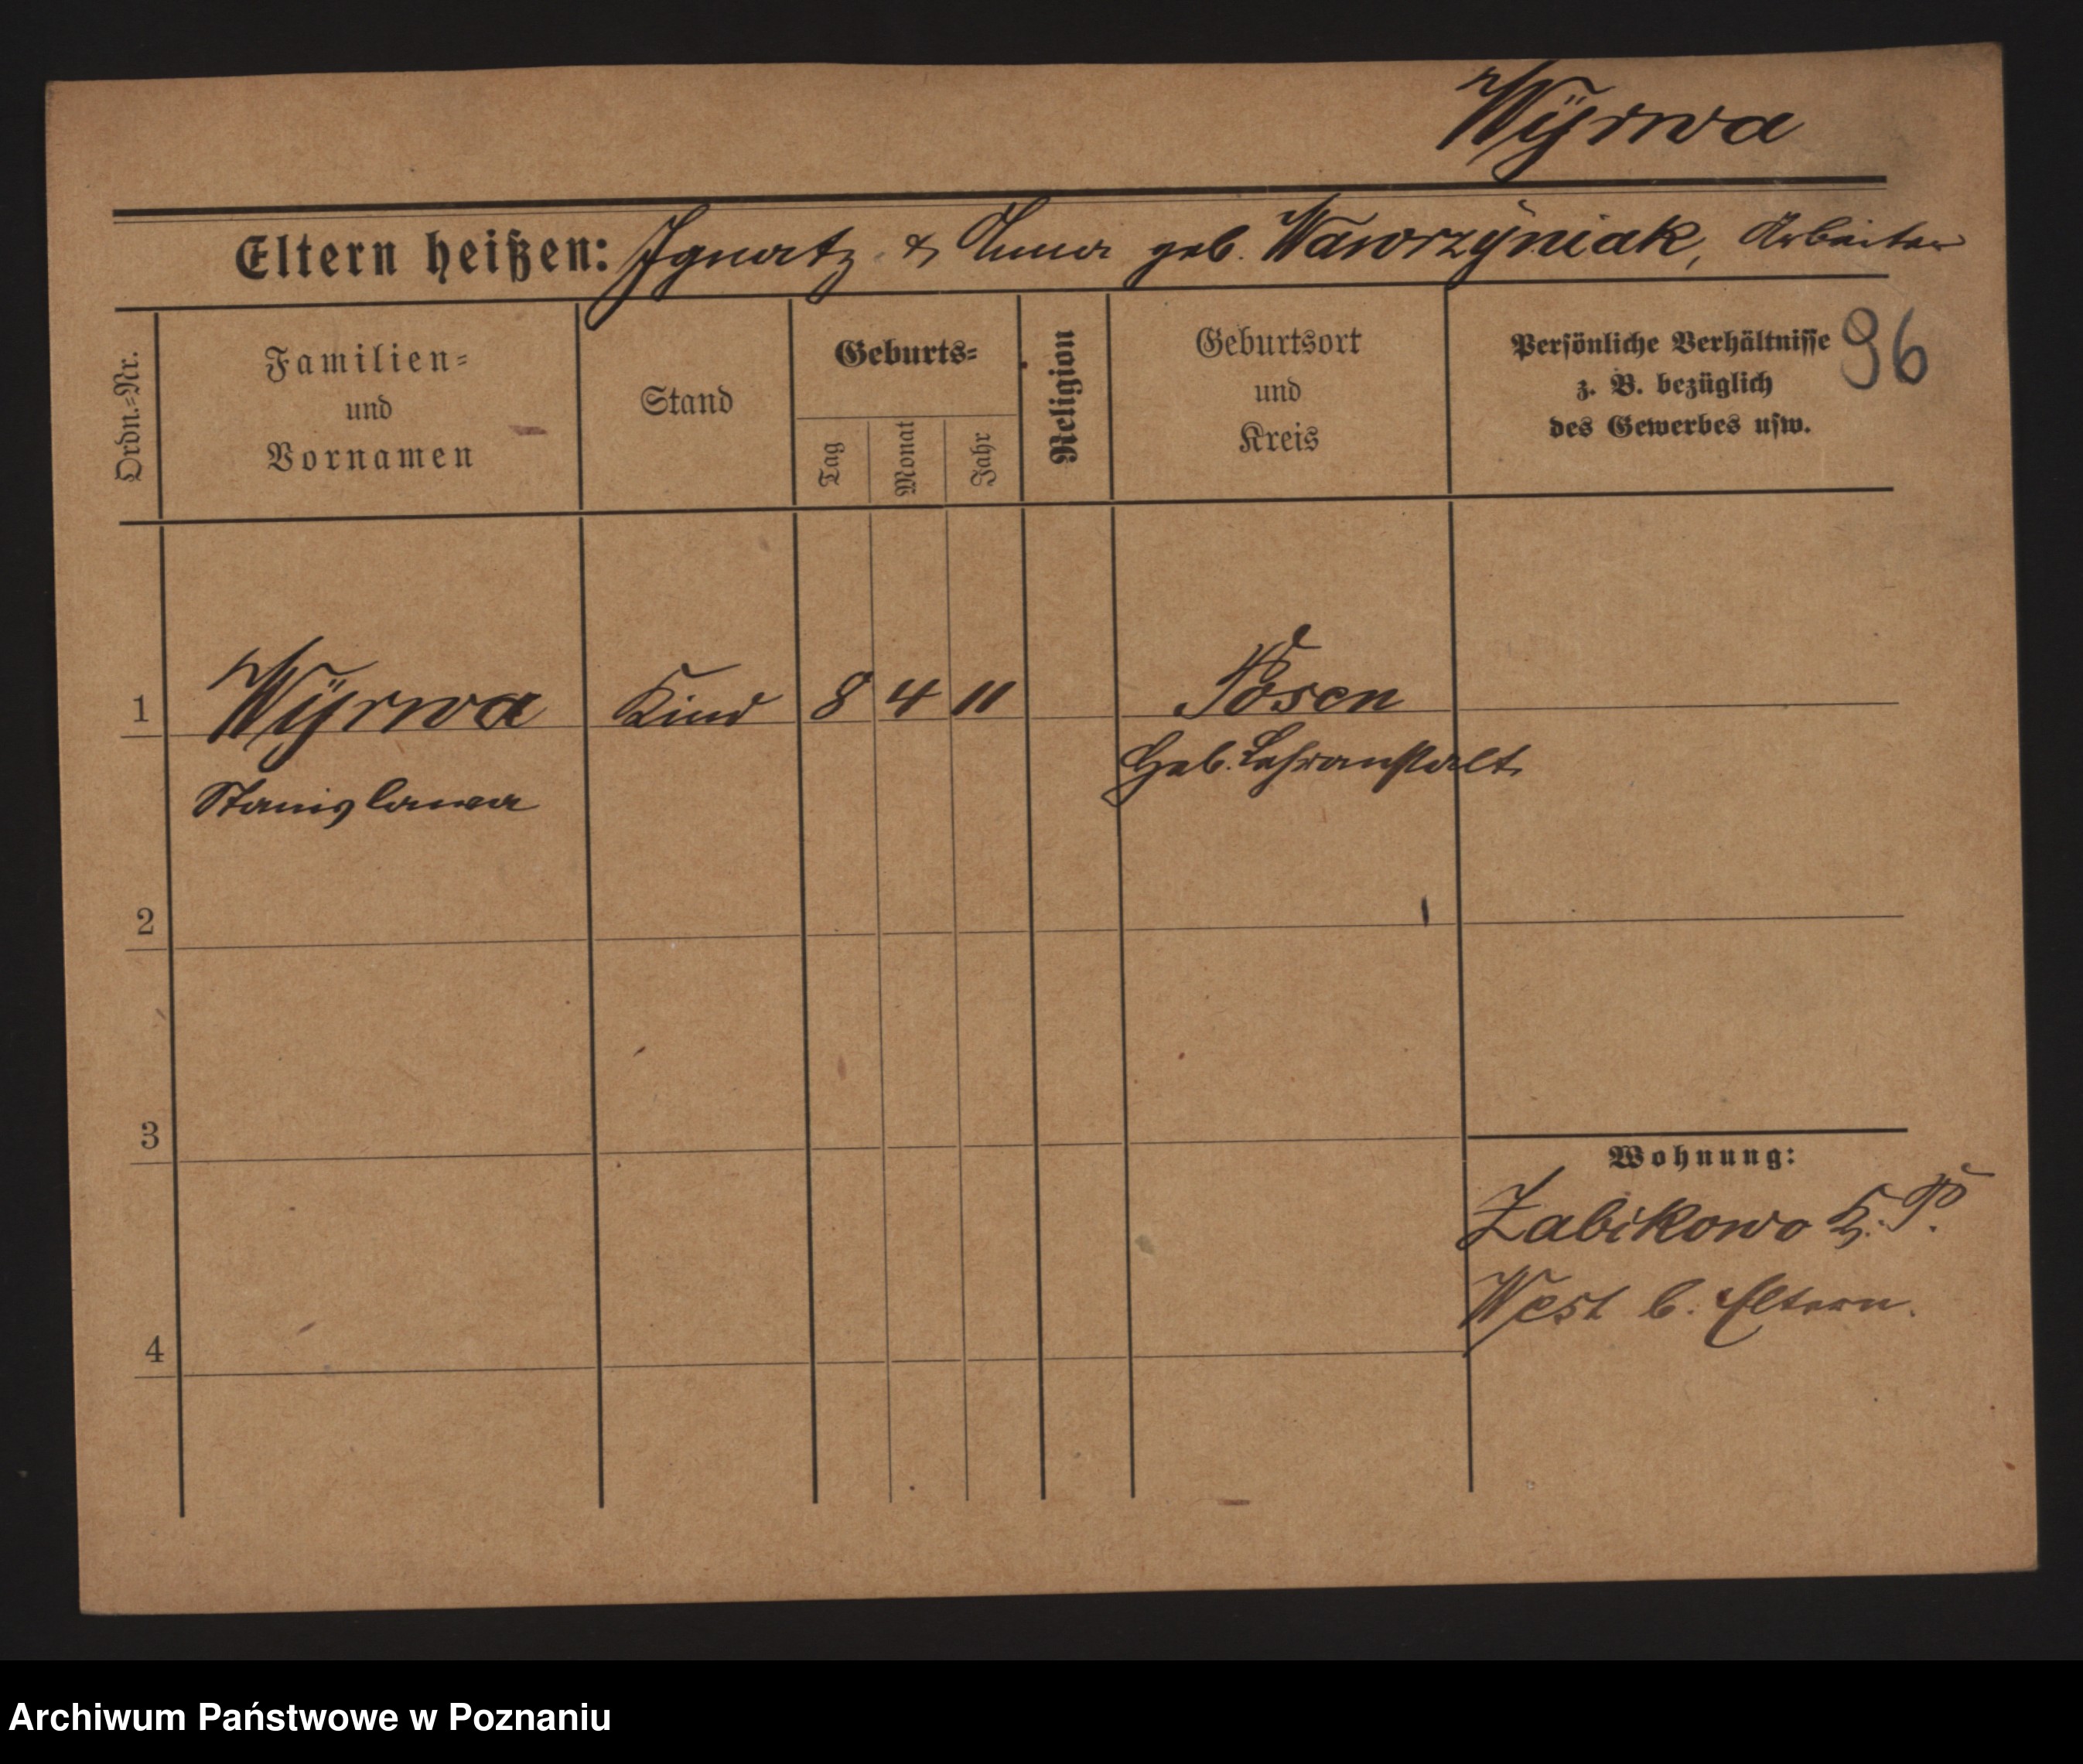 Wÿrwa
Eltern heißen: Ignatz & Anna geb. Wawrzÿniak, Arbeiter
96
Ordn.=Nr.
Familien=
und
Vornamen
Stand
Geburts=
Tag
Monat
Jahr
Religion
Geburtsort
und
Kreis
Persönliche Verhältnisse
z. B. bezüglich
des Gewerbes usw.
1
Wÿrwa
Kind
8
4
11
Posen
Stanislawa
Heb. Lehranstalt
2
3
Wohnung:
Zabikowo K. P.
West b. Eltern.
4
Archiwum Państwowe w Poznaniu